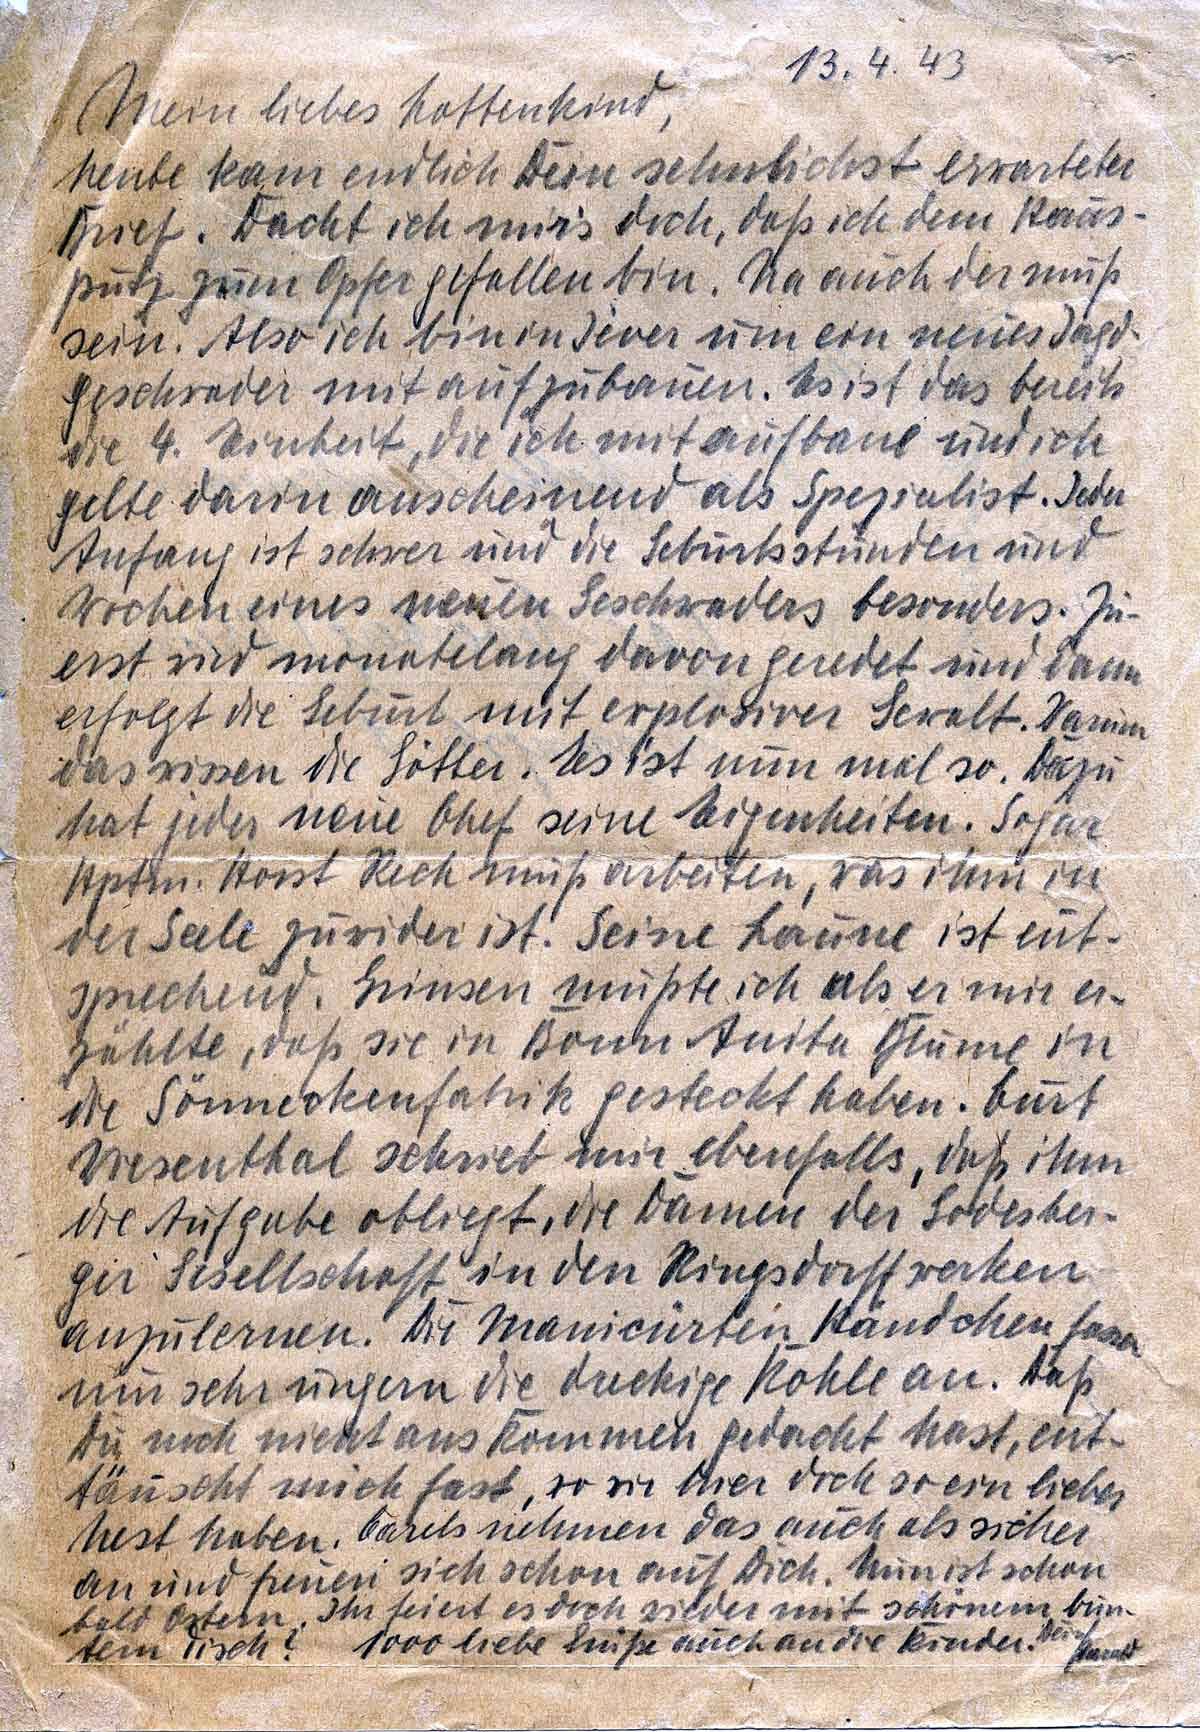 13. 4. 43
Mein liebes Kottenkind,
heute kam endlich Dein sehnlichst erwarteter
Brief. Dacht ich mir's doch, daß ich dem Haus-
putz zum Opfer gefallen bin. Na auch der muß
sein. Also ich bin in Jever um ein neues Jagd-
geschwader mit aufzubauen. Es ist das bereits
die 4. Einheit, die ich mit aufbaue und ich
gelte darin anscheinend als Spezialist. Jeder
Anfang ist schwer und die Geburtsstunden und
Wochen eines neuen Geschwaders besonders. Zu-
erst wird monatelang davon geredet und dann
erfolgt die Geburt mit explosiver Gewalt. Warum
das wissen die Götter. Es ist nun mal so. Dazu
hat jeder neue Chef seine Eigenheiten. Sogar
Hptm. Horst Rech muß arbeiten, was ihm in
der Seele zuwider ist. Seine Laune ist ent-
sprechend. Grinsen mußte ich als er mir er-
zählte, daß sie in Bonn Anita Blume in
die Sönneckenfabrik gesteckt haben. Curt
Wiesenthal schrieb mir ebenfalls, daß ihm
die Aufgabe obliegt, die Damen der Godesber-
ger Gesellschaft in den Ringsdorffwerken
anzulernen. Die manicürten Händchen fassen
nun sehr ungern die dreckige Kohle an. Daß
Du noch nicht ans Kommen gedacht hast, ent-
täuscht mich fast, wo wir hier doch so ein liebes
Nest haben. Carels nehmen das auch als sicher
an und freuen sich schon auf Dich. Nun ist schon
bald Ostern. Ihr feiert es doch wieder mit schönem bun-
tem Tisch? 1000 liebe Grüße auch an die Kinder. Dein